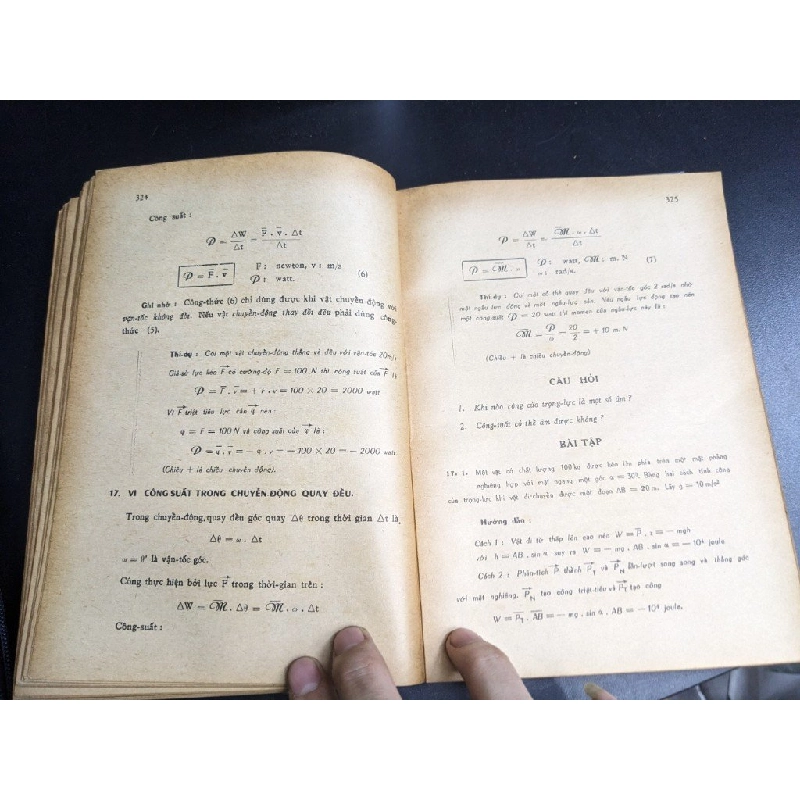 324
Công suất :
𝒫 = ΔW/Δt = F⃗ . v⃗ . Δt/Δt
𝒫 = F⃗ . v⃗ F : newton, v : m/s 𝒫 : watt. (6)
Ghi nhớ : Công-thức (6) chỉ dùng được khi vật chuyển-động với
vận-tốc không đổi. Nếu vật chuyển-động thay đổi đều phải dùng công-
thức (5).
Thí-dụ : Coi một vật chuyển-động thẳng và đều với vận-tốc 20m/s
Giả-sử lực kéo F⃗ có cường-độ F = 100 N thì công suất của F⃗ là
𝒫 = F⃗ . v⃗ = + F . v = 100 × 20 = 2000 watt
Vì F⃗ triệt tiêu lực cản q⃗ nên :
q = F = 100 N và công suất của q⃗ là :
𝒫 = q⃗ . v⃗ = – q . v = – 100 × 20 = – 2000 watt
(Chiều + là chiều chuyển động).
17. VI CÔNG SUẤT TRONG CHUYỂN-ĐỘNG QUAY ĐỀU.
Trong chuyển-động quay đều góc quay Δθ trong thời gian Δt là
Δθ = ω . Δt
ω = θ' là vận-tốc góc.
Công thực hiện bởi lực F⃗ trong thời-gian trên :
ΔW = ℳ . Δθ = ℳ . ω . Δt
Công-suất :
325
𝒫 = ΔW/Δt = ℳ . ω . Δt/Δt
𝒫 = ℳ . ω 𝒫 : watt, ℳ : m. N ω : rad/s. (7)
Thí-dụ : Coi một cố thể quay đều với vận-tốc góc 2 rad/s nhờ
một ngẫu-lực động và một ngẫu-lực cản. Nếu ngẫu lực động tạo nên
một công-suất 𝒫 = 20 watt thì momen của ngẫu-lực này là :
ℳ = 𝒫/ω = 20/2 = + 10 m. N
(Chiều + là chiều chuyển-động)
CÂU HỎI
1. Khi nào công của trọng-lực là một số âm ?
2. Công-suất có thể âm được không ?
BÀI TẬP
Một vật có khối lượng 100 kg được kéo lên phía trên một mặt phẳng
nghiêng hợp với mặt ngang một góc α = 30º. Bằng hai cách tính công
của trọng-lực khi vật di-chuyển được một đoạn AB = 20 m. Lấy g = 10 m/s²
Hướng dẫn :
Cách 1 : Vật đi từ thấp lên cao nên W = P⃗ . = – mgh
với h = AB . sin α suy ra W = – mg . AB . sin α = – 10⁴ joule
Cách 2 : Phân-tích P⃗ thành P⃗T và P⃗N lần-lượt song song và thẳng góc
với mặt nghiêng. P⃗N tạo công triệt-tiêu và P⃗T tạo công
W = P⃗T . AB = – mg . sin α . AB = – 10⁴ joule.